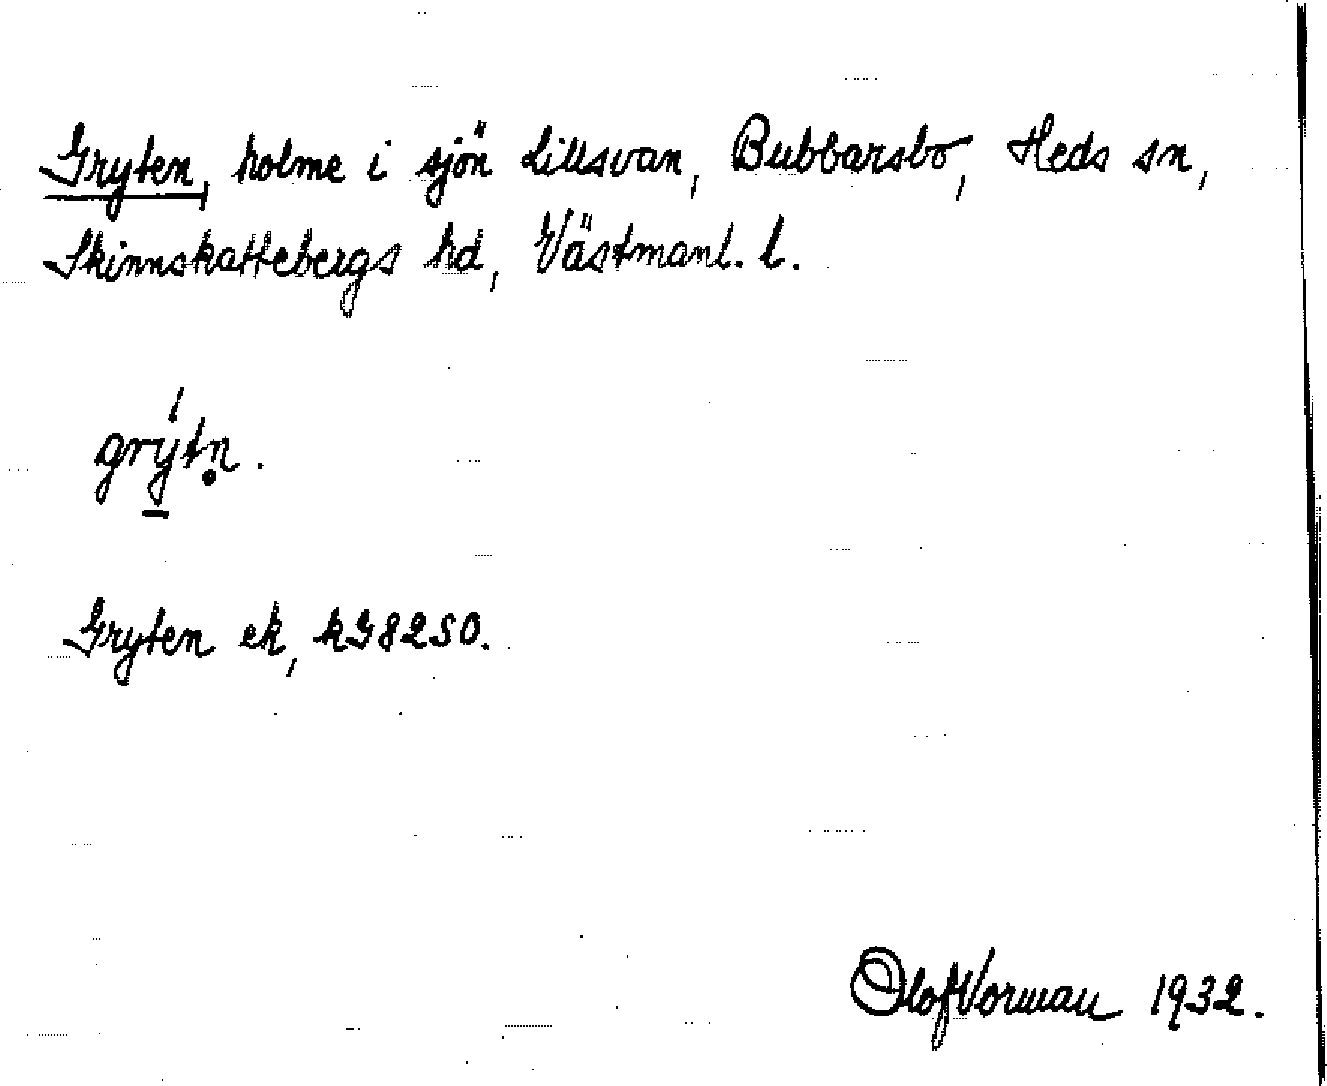 Gryten, holme i sjön Lillsvan, Bubbarsbo, Heds sn,
Skinnskattebergs hd, Västmanl. l.
grýtn̥.
Gryten ek, k98250.
Olof Vorman 1932.